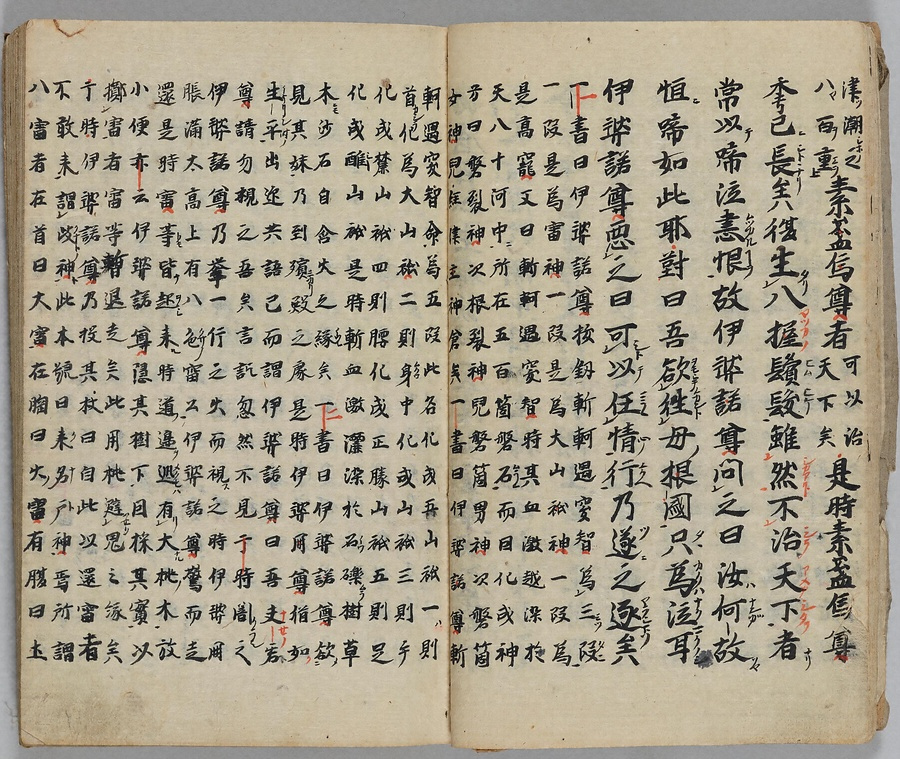 津潮之八百重素盞烏尊者可以治天下矣是時素盞烏尊
季已長矣従生八握鬚髮雖然不治天下者
常以啼泣恚恨故伊弉諾尊問之曰汝何故
恒啼如此耶對曰吾欲徃母根國只為泣耳
伊弉諾尊惡之曰可以任情行乃遂之逐矣
一書曰伊弉諾尊拔釼斬軻遇突智為三段
一段是為雷神一段是為大山祇神一段為
是高龗又曰斬軻遇突智時其血激越染於
天八十河中所在五百箇磐石而因化成神
号曰磐裂神次根裂神兒磐筒男神次磐筒
女神兒主神倉矣一書曰伊弉諾尊斬
軻遇突智命為五段此各化成五山祇一則
首化為大山祇二則身中化成山祇三則手
化成麓山祇四則腰化成正勝山祇五則足
化成山祇是時斬血激灑染於石礫樹草
木沙石自含火之縁矣一書曰伊弉諾尊欲
見其妹乃到殯殿之處是時伊弉冊尊猶如
生平出迎共語已而謂伊弉諾尊曰吾夫君
尊請勿視之吾矣言訖忽然不見于時闇之
伊弉諾尊乃挙一行之火而視之時伊弉冊
脹滿太高上有八色雷公伊弉諾尊驚而走
還是時雷等皆起来時道邊逃有大桃木放
小便亦云伊弉諾尊隠其樹下因採其實以
擲雷者雷等退走矣此用桃避鬼之縁矣
于時伊弉諾尊乃投其杖曰自此以還雷者
不敢来謂岐神此本號曰来名戸神焉所謂
八雷者在首曰大雷在胸曰火雷有腹曰土